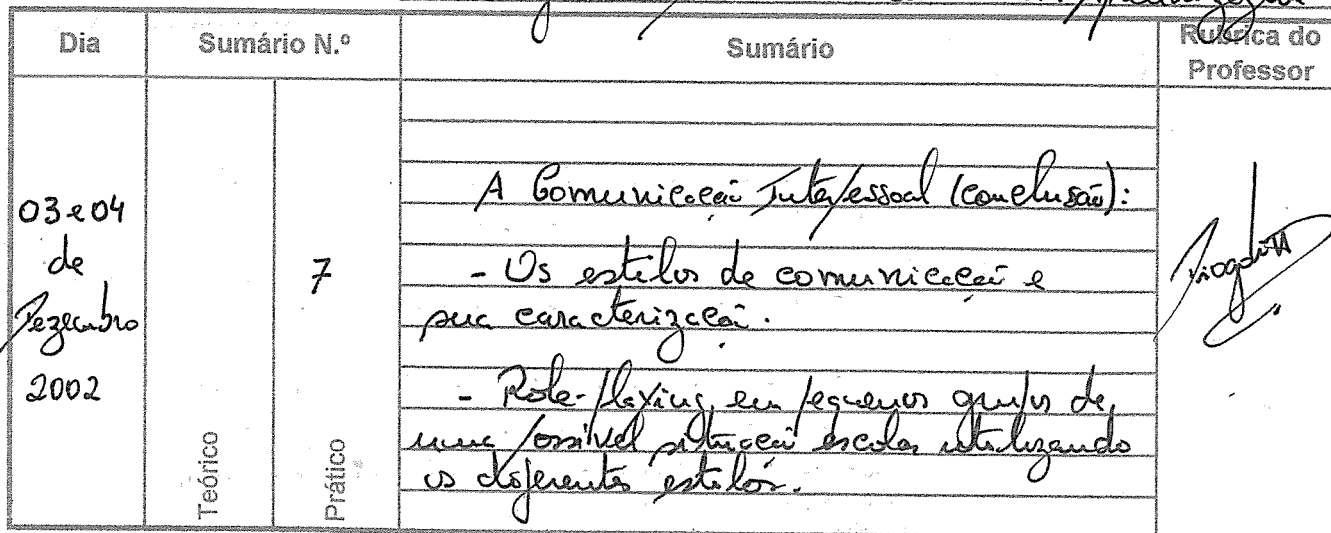 Dia
Sumário N.º
Sumário
Rubrica do
Professor
03 e 04
de
Dezembro
2002
7
Teórico
Prático
A Comunicação Interpessoal (conclusão):
- Os estilos de comunicação e
sua caracterização.
- Role-playing, em pequenos grupos de
uma possível situação escolar utilizando
os diferentes estilos.